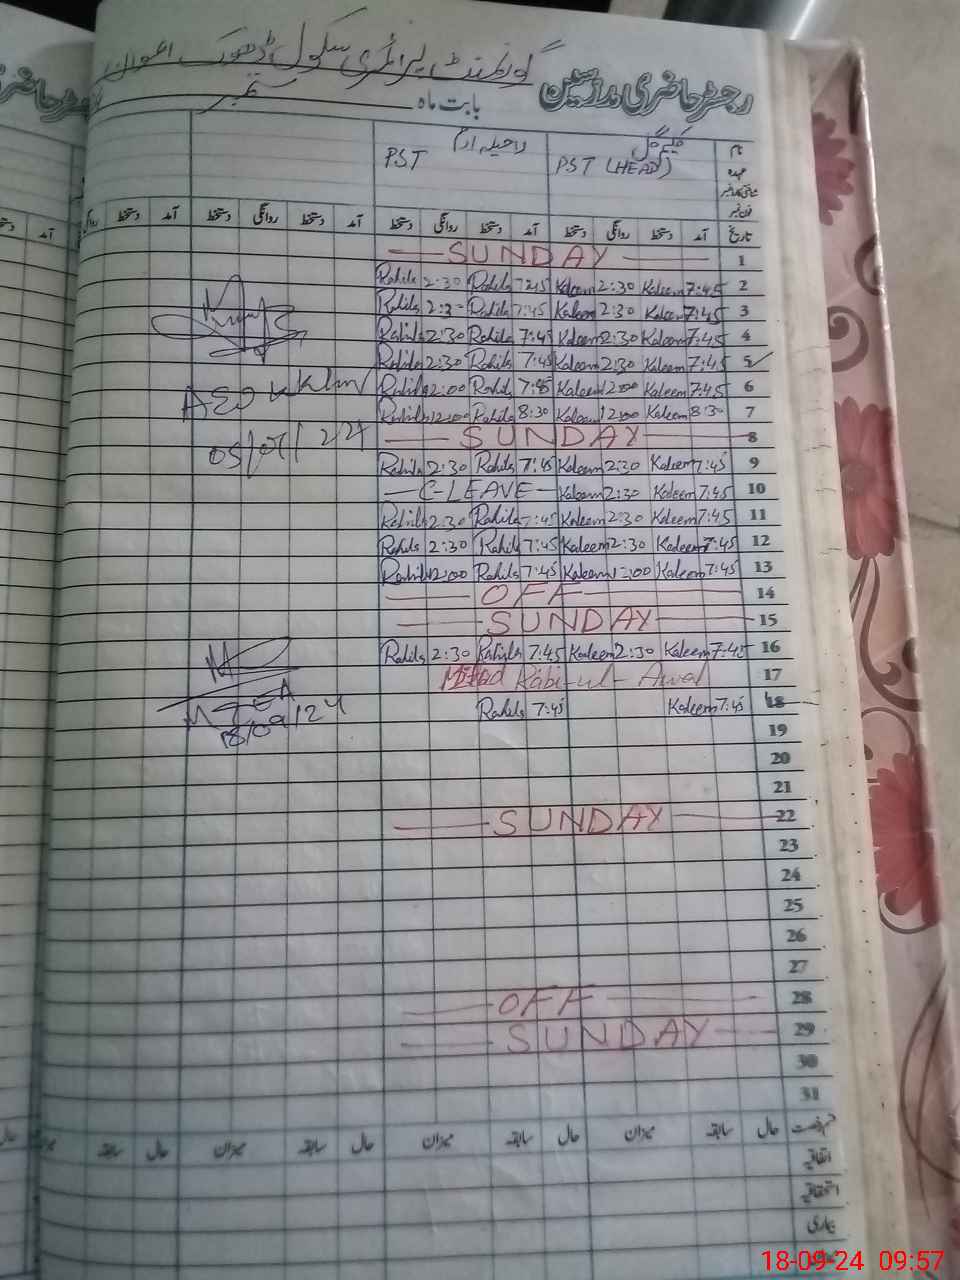 رجسٹر حاضری مدرسین گورنمنٹ پرائمری سکول ڈھوک اعوان
بابت ماہ ستمبر
نام کلیم گل راحیلہ ارم
عہدہ PST (HEAD) PST
فون نمبر
تاریخ آمد دستخط روانگی دستخط آمد دستخط روانگی دستخط آمد دستخط روانگی دستخط آمد دستخط روانگی
1 SUNDAY
Rahila 2:30 Rahila 7:45 Kaleem 2:30 Kaleem 7:45 2
Rahila 2:30 Rahila 7:45 Kaleem 2:30 Kaleem 7:45 3
Rahila 2:30 Rahila 7:45 Kaleem 2:30 Kaleem 7:45 4
Rahila 2:30 Rahila 7:45 Kaleem 2:30 Kaleem 7:45 5
AEO Rahila 12:00 Rahila 7:45 Kaleem 12:00 Kaleem 7:45 6
Rahila 12:00 Rahila 8:30 Kaleem 12:00 Kaleem 8:30 7
SUNDAY 8
Rahila 2:30 Rahila 7:45 Kaleem 2:30 Kaleem 7:45 9
C-LEAVE Kaleem 2:30 Kaleem 7:45 10
Rahila 2:30 Rahila 7:45 Kaleem 2:30 Kaleem 7:45 11
Rahila 2:30 Rahila 7:45 Kaleem 2:30 Kaleem 7:45 12
Rahila 12:00 Rahila 7:45 Kaleem 12:00 Kaleem 7:45 13
OFF 14
SUNDAY 15
Rahila 2:30 Rahila 7:45 Kaleem 2:30 Kaleem 7:45 16
Milad Rabi-ul-Awal 17
MEA Rahila 7:45 Kaleem 7:45 18
18/09/24 19
20
21
SUNDAY 22
23
24
25
26
27
OFF 28
SUNDAY 29
30
31
قسم رخصت حال سابقہ میزان حال سابقہ میزان حال سابقہ میزان حال سابقہ
اتفاقیہ
استحقاقیہ
بیماری
18-09-24 09:57